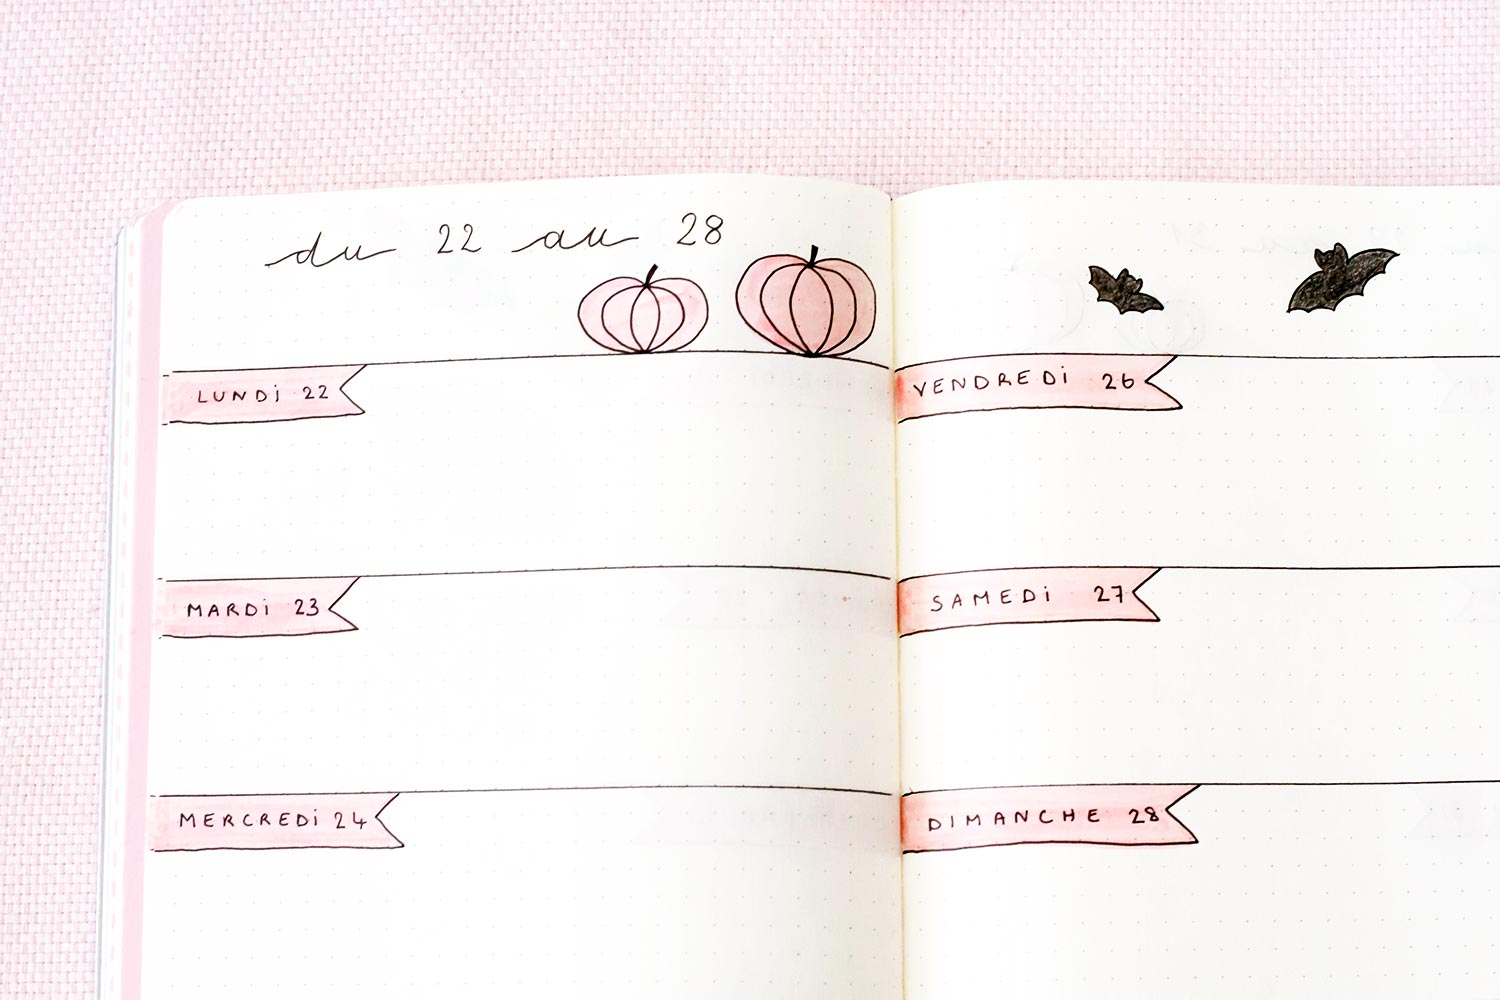 du 22 au 28
LUNDi 22
MARDi 23
MERCREDi 24
VENDREDi 26
SAMEDi 27
DIMANCHE 28